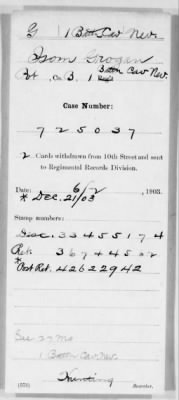 G 1 Batt Cav Nev.
Isom Grogan
Pvt. Co. B, 1 Battn Cav Nev.
Case Number:
725037
2 Cards withdrawn from 10th Street and sent
to Regimental Records Division.
Date: 6/2, 1903.
* Dec. 21/03
Stamp numbers:
Desc. 33455174
Ret. 36744502
*Post Ret. 42622942
See 27 Mo
1 Battn Cav Nev.
Searcher.